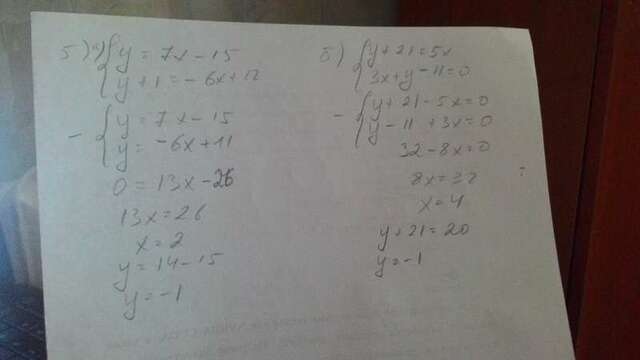 5) а) { y = 7x - 15
y + 1 = - 6x + 12
- { y = 7x - 15
y = -6x + 11
0 = 13x - 26
13x = 26
x = 2
y = 14 - 15
y = -1
б) { y + 21 = 5x
3x + y - 11 = 0
- { y + 21 - 5x = 0
y - 11 + 3x = 0
32 - 8x = 0
8x = 32
x = 4
y + 21 = 20
y = -1